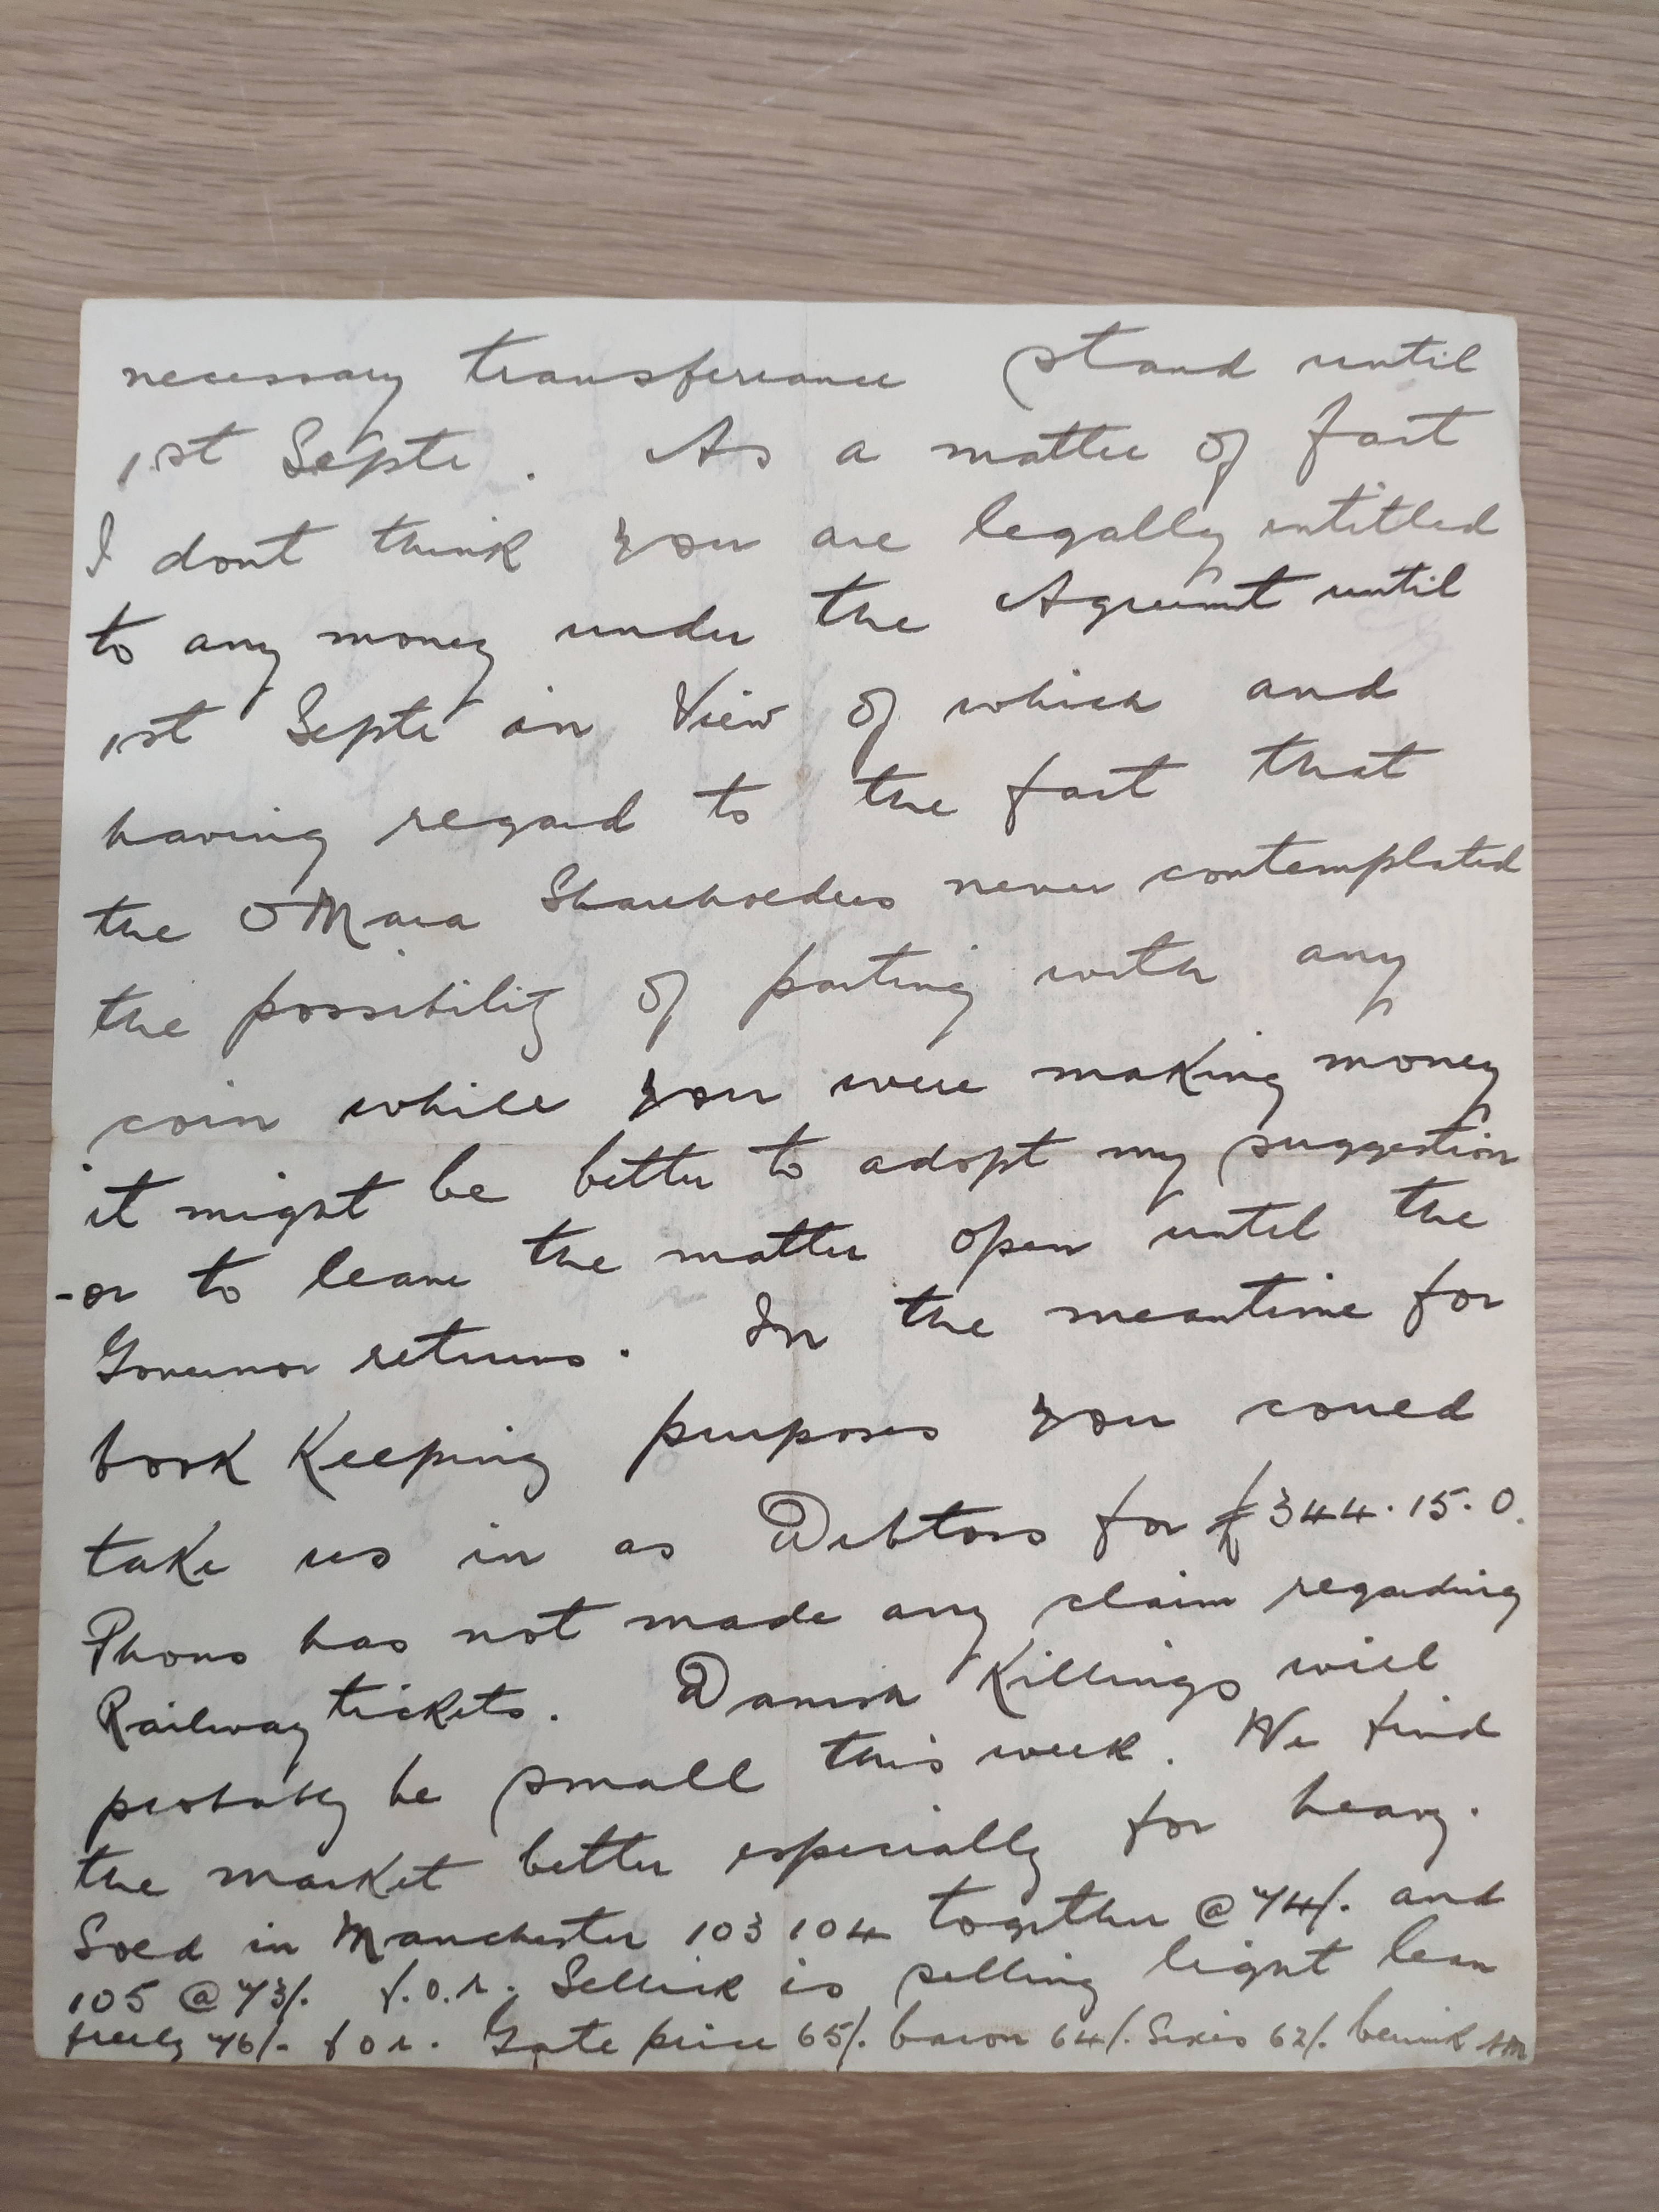 necessary transferance stand until
1st Septr. As a matter of fact
I dont think you are legally entitled
to any money under the Agreemt until
1st Septr in View of which and
having regard to the fact that
the O'Mara Shareholders never contemplated
the possibility of parting with any
coin while you were making money
it might be better to adopt my suggestion
-or to leave the matter open until the
Governor returns. In the meantime for
book Keeping purposes you could
take us in as Debtors for £344.15.0.
Phons has not made any claim regarding
Railway tickets. Danish Killings will
probably be small this week. We find
the market better especially for heavy.
Sold in Manchester 103 104 together @ 74/. and
105 @ 73/. f.o.r. Sellick is selling light lean
freely 76/- f o r. Gate price 65/. bacon 64/. Sixes 62/.